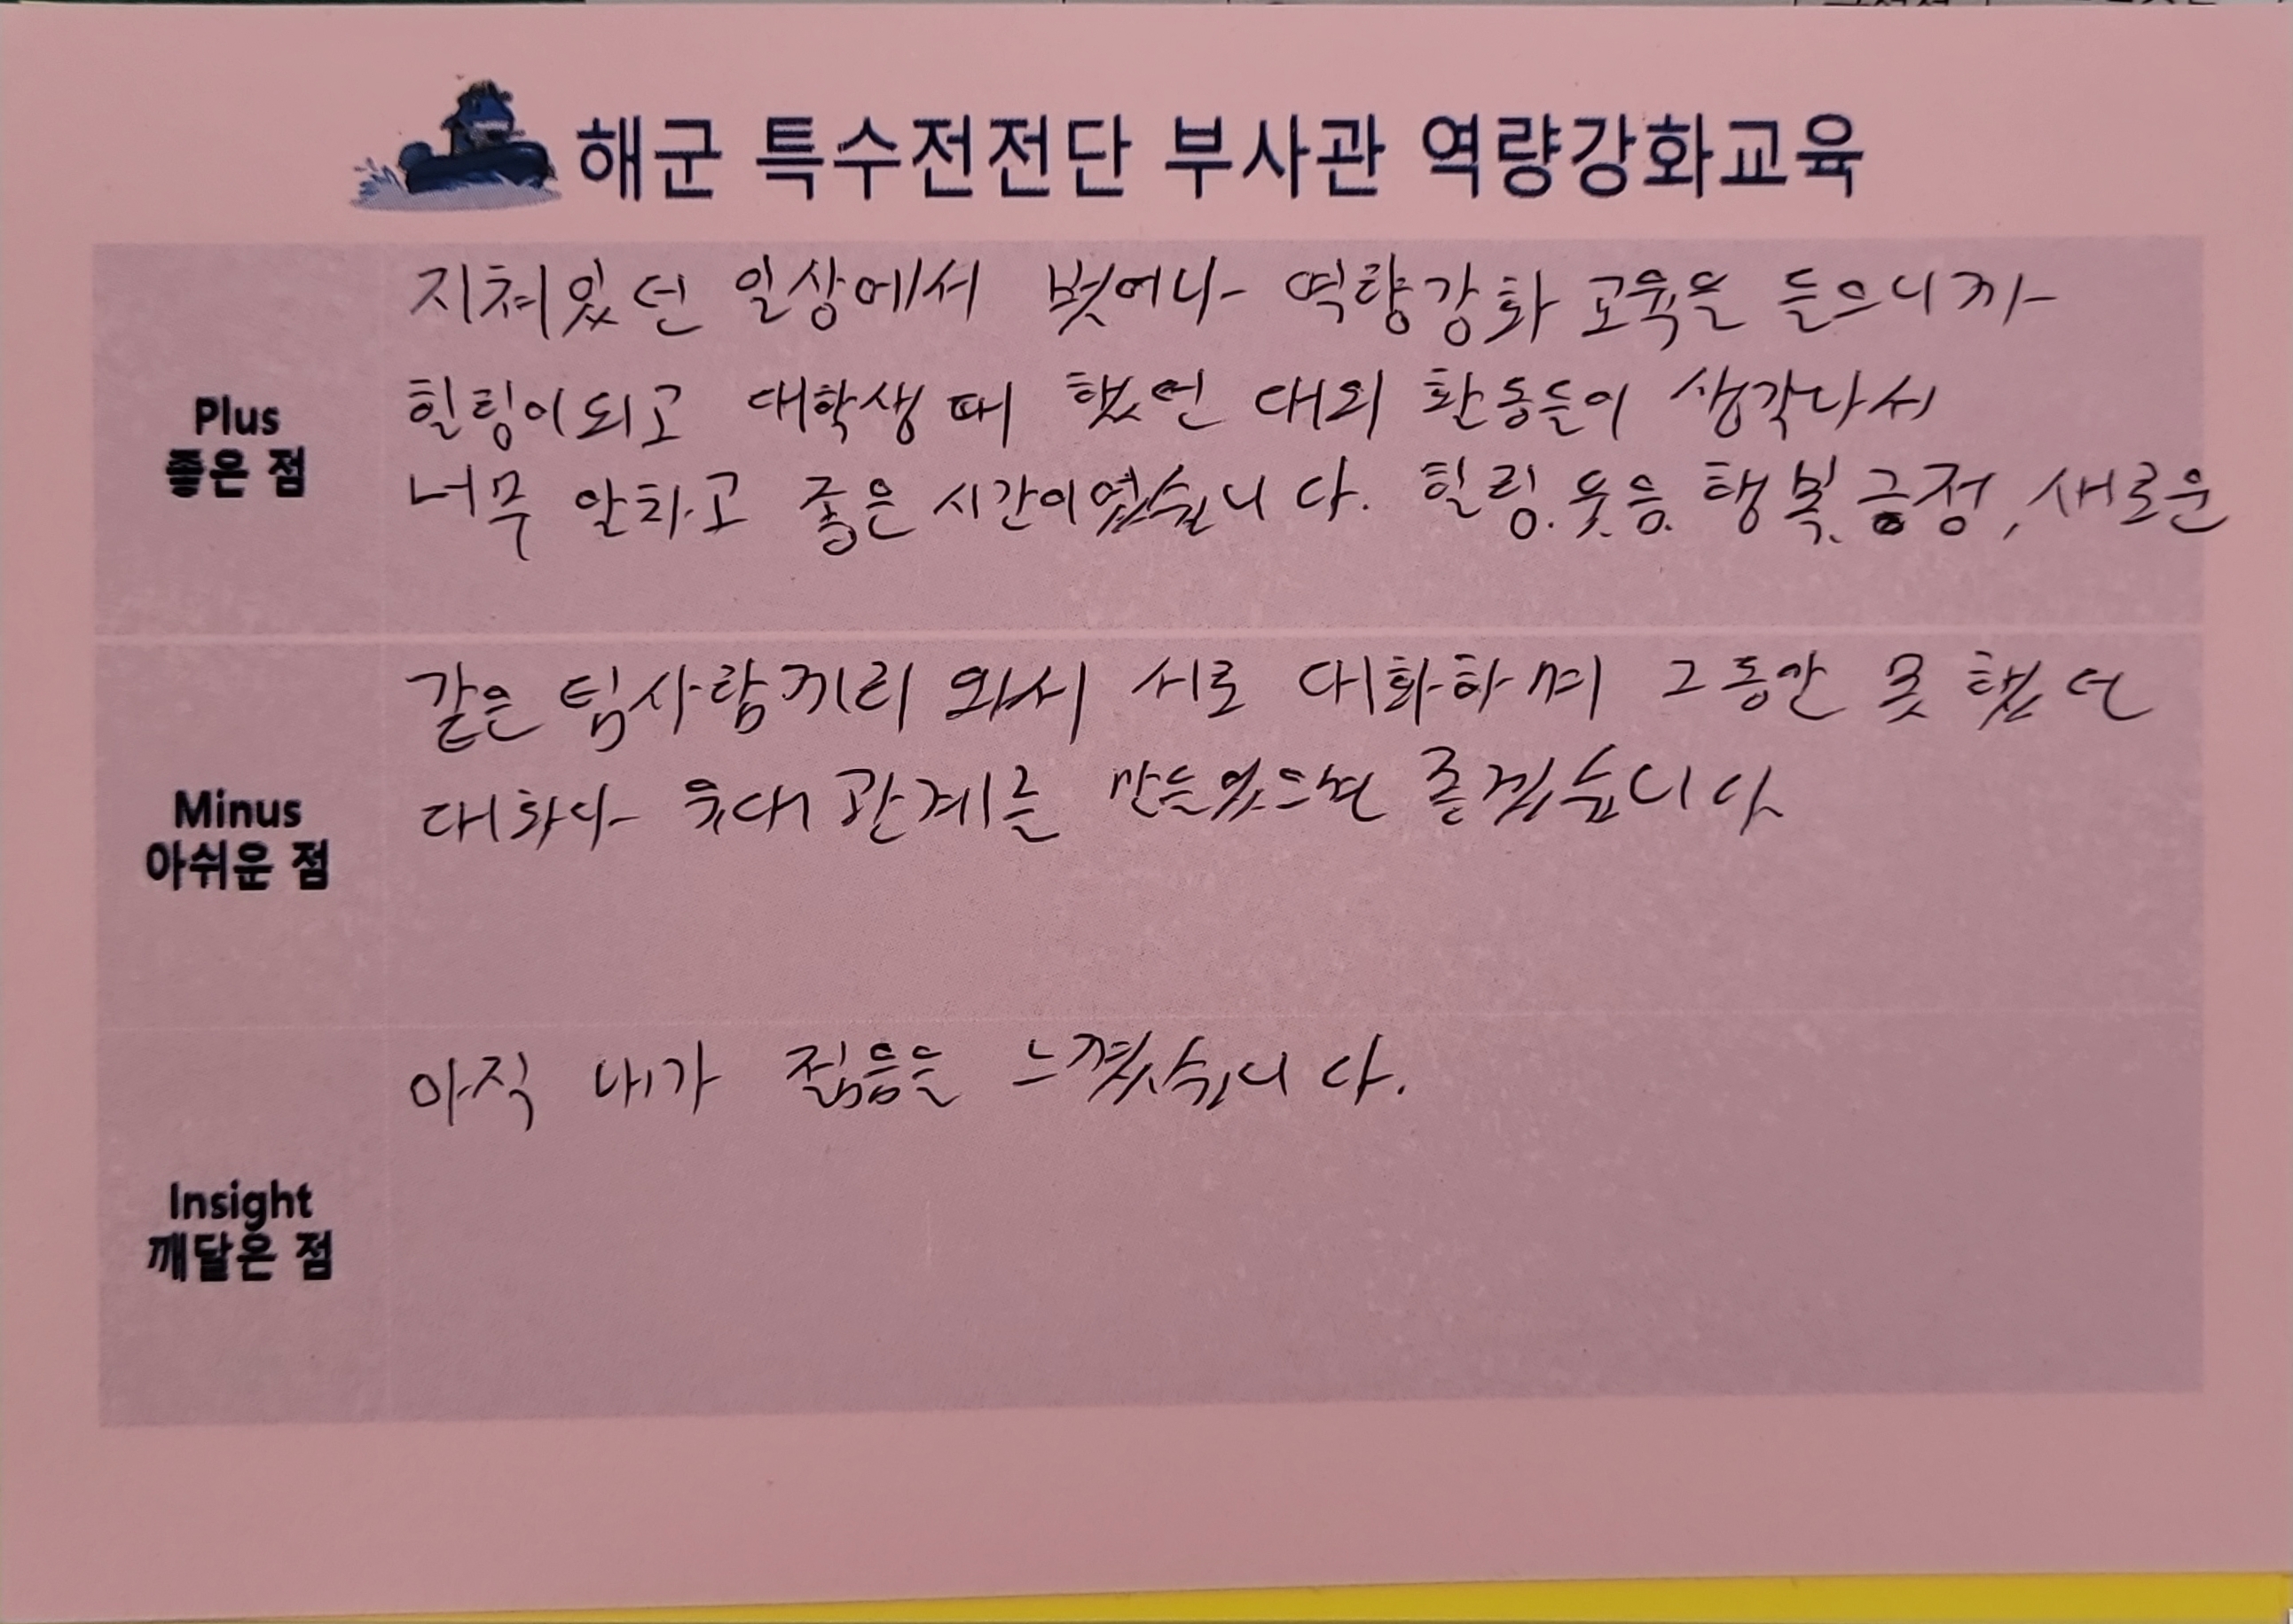 해군 특수전전단 부사관 역량강화교육
Plus
좋은 점
지쳐있던 일상에서 벗어나 역량강화 교육을 들으니까
힐링이되고 대학생때 했던 대외 활동들이 생각나서
너무 알차고 좋은 시간이였습니다. 힐링. 웃음. 행복, 긍정, 새로운
Minus
아쉬운 점
같은 팀사람끼리 와서 서로 대화하며 그동안 못 했던
대화나 유대관계를 만들었으면 좋겠습니다
Insight
깨달은 점
아직 내가 젊음을 느꼈습니다.